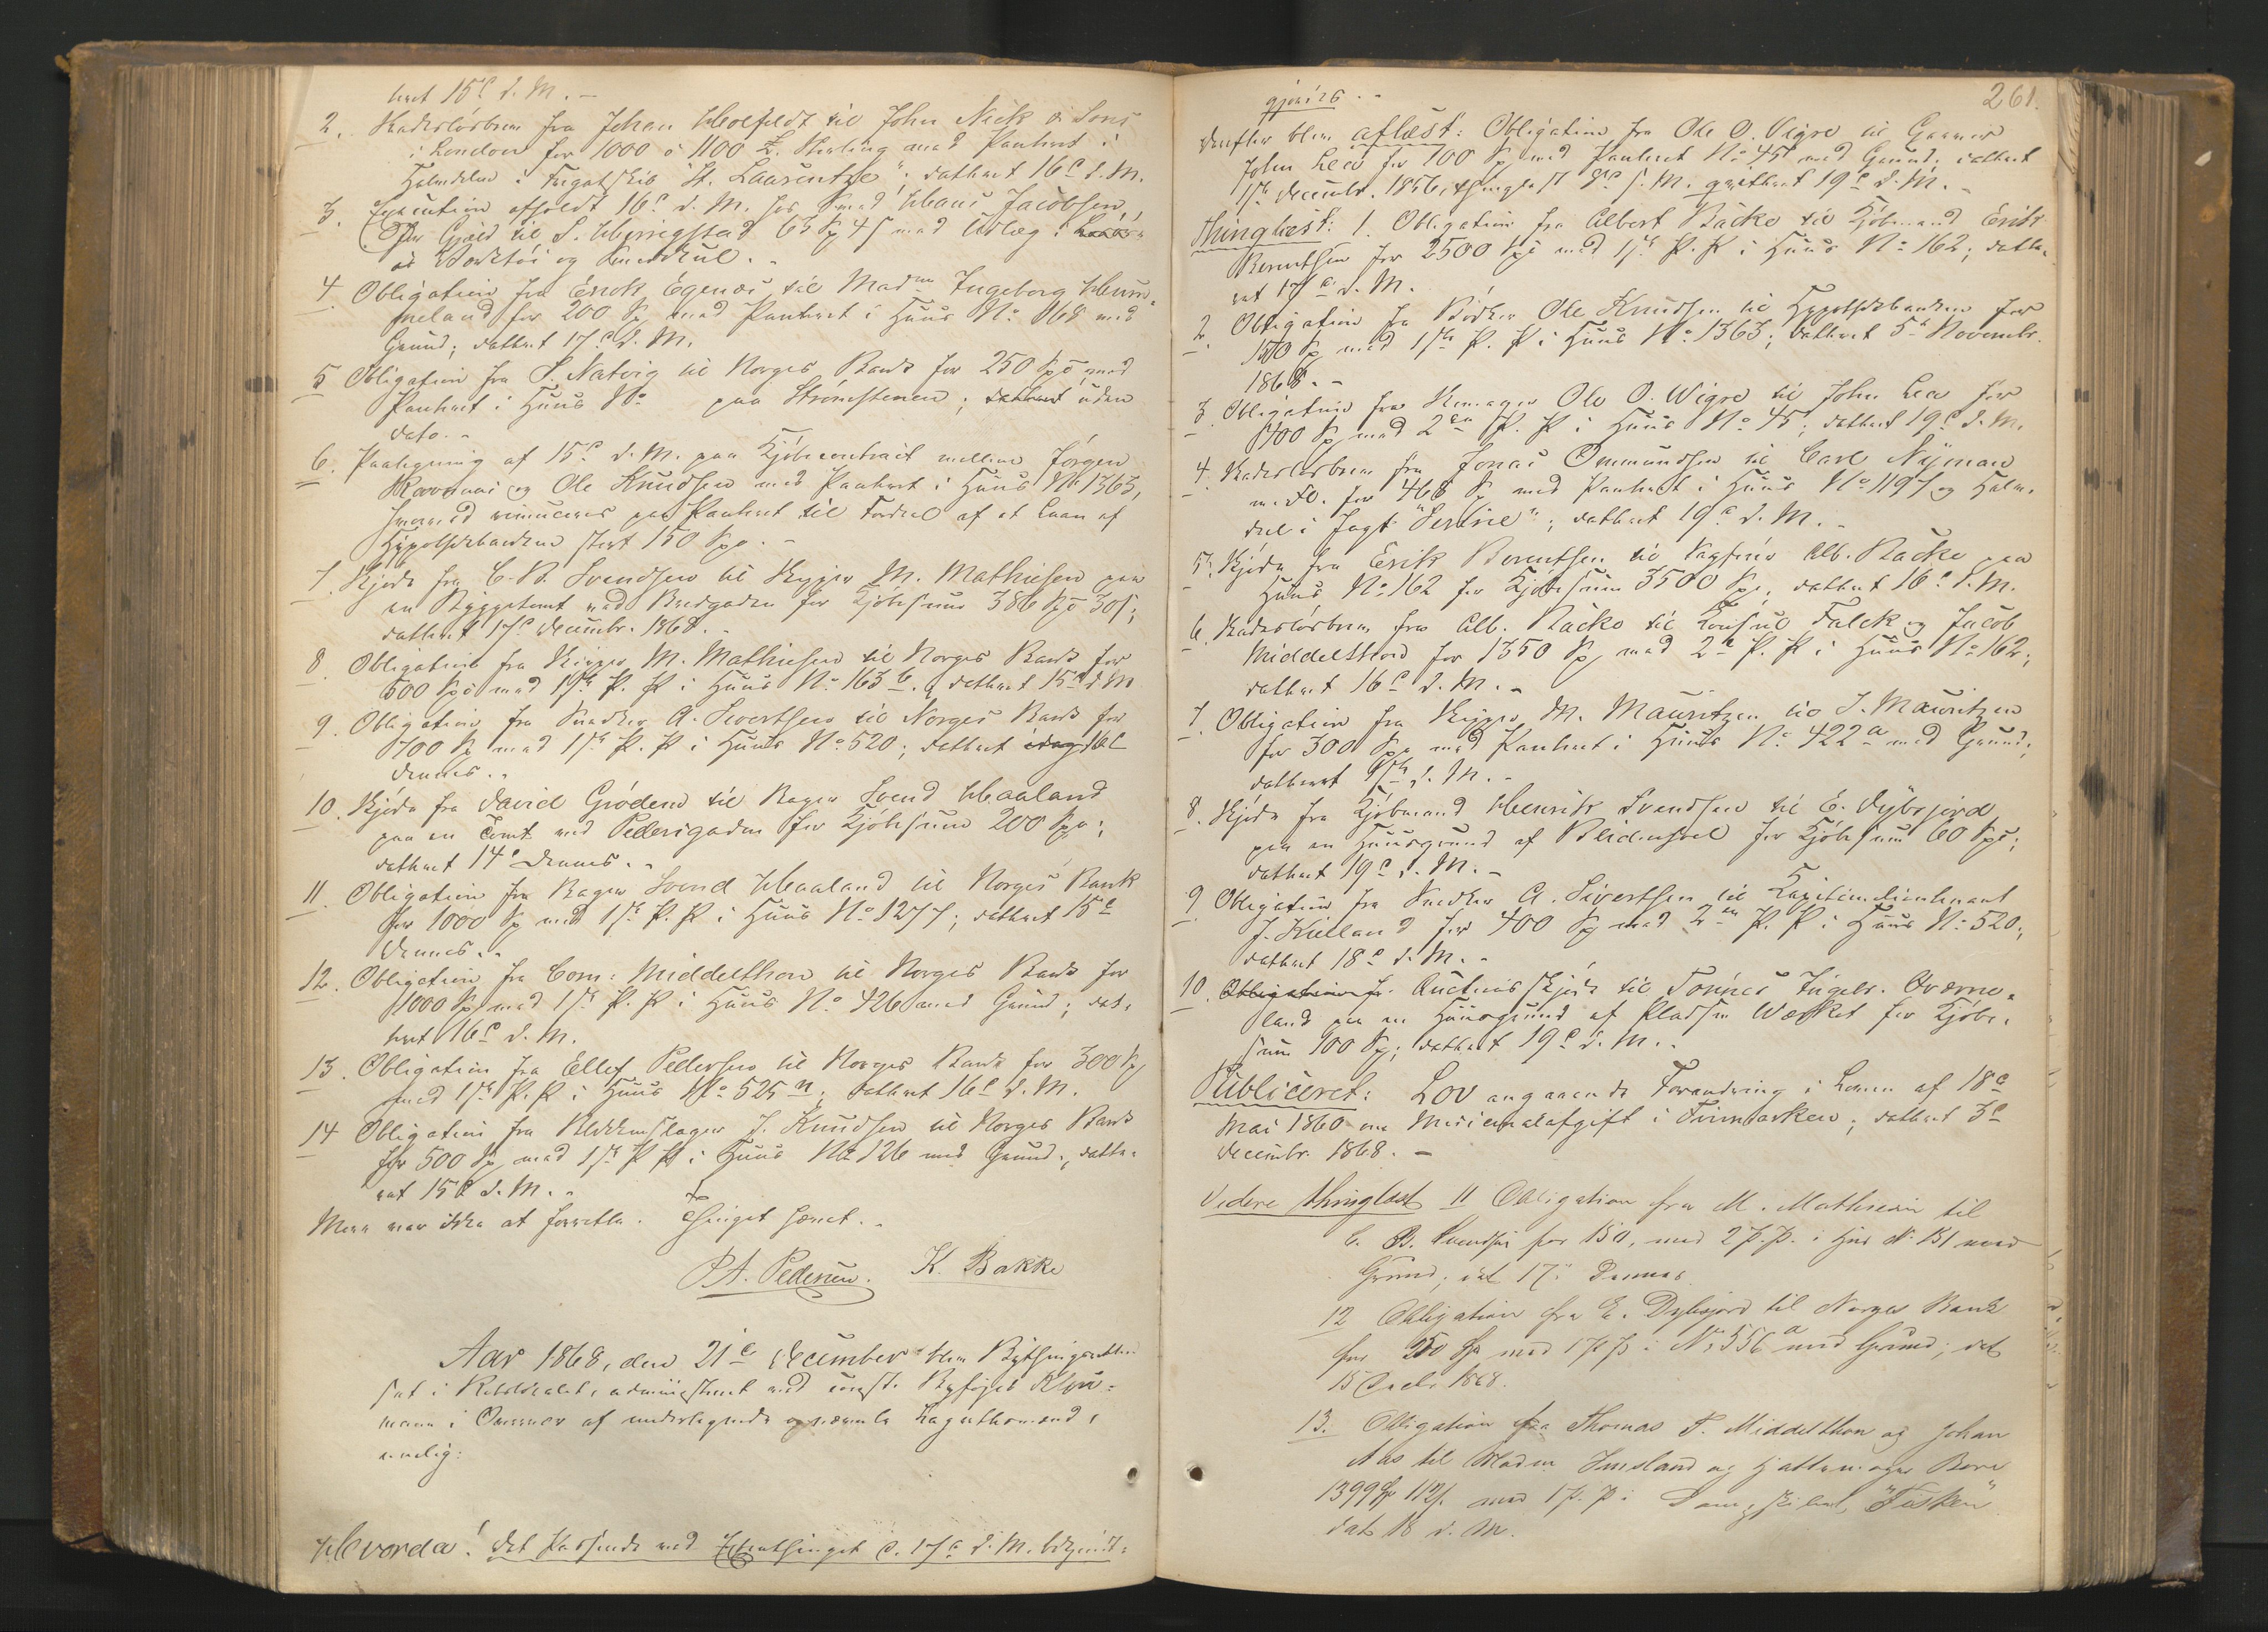 teret 15de d. M. –
2. Kadesløsbrev fra Johan Holfeldt til John Nick & Sons
i London for 1000 à 1100 £ Sterling med Panteret i
Halvdelen i Fregatskib "St. Laurentze"; dateret 16de d. M.
3. Execution afholdt 16de d. M. hos Smed Hans Jacobsen,
for Gjæld til S. 63 Sp 4 s med Udlæg i
og
4 Obligation fra Erick Egenæs til Madme Ingeborg Hum-
meland for 200 Sp med Panteret i Huus No 868 med
Grund; dateret 17de d. M.
5 Obligation fra S. Natvig til Norges Bank for 250 Spd med
Panteret i Huus No paa Strømsteenen; dateret uden
dato. –
6. Paategning af 15de d. M. paa Kjøbecontract mellem Jørgen
Ravnaas og Ole Knudsen med Panteret i Huus No 1363,
hvorved renunceres paa Panteret til Fordeel af et Laan af
Hypothekbanken stort 150 Spd. –
7. Skjøde fra C. B. Svendsen til Skipper M. Mathiesen paa
en Byggetomt ved Bredgaden for Kjøbesum 386 Spd 30 s;
dateret 17de Decembr. 1868. –
8 Obligation fra Skipper M. Mathiesen til Norges Bank for
500 Spd med 1ste P. R i Huus No 163 b. dateret 15de d M
9. Obligation fra Snedker A. Sivertsen til Norges Bank for
700 Sp med 1ste P. R i Huus No 520; dateret idag 16de
dennes. –
10. Skjøde fra David Grødem til Bager Svend Haaland
paa en Tomt ved Pedersgaden for Kjøbesum 200 Spd;
dateret 14de dennes. –
11. Obligation fra Bager Svend Haaland til Norges Bank
for 1000 Sp med 1ste P. R i Huus No 1277; dateret 15de
dennes. –
12. Obligation fra Corn: Middelthon til Norges Bank for
1000 Sp med 1ste P. R i Huus No 426 med Grund; da-
teret 16de d. M.
13. Obligation fra Ellef Pedersen til Norges Bank for 300 Sp
med 1ste P. R i Huus No 525 n; dateret 16de d. M.
14 Obligation fra Blikkenslager J. Knudsen til Norges Bank
for 500 Sp med 1ste P R i Huus No 126 med Grund; date-
ret 15de d. M. –
Mere var ikke at forrette. Thinget hævet. –
P. A. Pedersen. K. Bakke
Aar 1868, den 21de December blev Bythingsretten
sat i Raadstuelokalet, administreret ved const. Byfoged
mann i Overvær af undertegnede opnævnte Laugrettemænd,
nemlig:
Hvorda! det Passerede ved Extrathinget d. 17de d. M. bekjendt-
261.
gjøres. –
derefter blev aflæst: Obligation fra Ole O. Vigre til Garver
John Lea for 100 Sp med Panteret No 45 med Grund; dateret
Decembr. 1856, thinglæst s. M. qvitteret 19de d. M. –
Thinglæst: 1. Obligation fra Albert Backe til Kjøbmand Erik
Berentsen for 2500 Spd med 1ste P. R i Huus No 162; date-
ret 17de d. M.
2. Obligation fra Bødker Ole Knudsen til Hypothekbanken for
150 Sp med 1ste P. R i Huus No 1363; dateret 5te Novembr.
1868. –
3 Obligation fra Ole O. Wigre til John Lea for
100 Sp med 2den P. R i Huus No 45; dateret 19de d. M.
4. Kadesløsbrev fra Jonas Ommundsen til Carl Nyman
m. Fl. for 468 Sp med Panteret i Huus No 1197 og Halv-
deel i Jagt "Serine"; dateret 19de d. M. –
5. Skjøde fra Erik Berentsen til Alb. Backe paa
Huus No 162 for Kjøbesum 3500 Spd, dateret 16de d. M.
6. Kadesløsbrev fra Alb. Backe til Consul Falck og Jacob
Middelthon for 1350 Sp med 2den P. R i Huus No 162;
dateret 16de d. M. –
7. Obligation fra Skipper M. Mauritzen til J. Mauritzen
for 300 Spd med Panteret i Huus No 422 a med Grund;
dateret d. M. –
8. Skjøde fra Kjøbmand Henrik Svendsen til E. Dybsjord
paa en Huusgrund af Blidensoel for Kjøbesum 60 Spd;
dateret 19de d. M. –
9 Obligation fra Snedker A. Sivertsen til Kapitainlieutenant
J. Kielland for 400 Sp med 2den P. R i Huus No 520;
dateret 18de d. M. –
10. Obligation fr. Auctionsskjøde til Tønnes Ingebr. Qværne-
land paa en Huusgrund af Pladsen Wærket for Kjøbe-
sum 100 Sp; dateret 19de d. M. –
Publiceret: Lov angaaende Forandring i Loven af 18de
Mai 1860 om Medicinalafgift i Finmarken; dateret 3de
Decembr. 1868. –
Videre thinglæst 11 Obligation fra M. Mathiesen til
C. B. Svendsen for 150, med 2 P. P. i Hus No 151 med
Grund; dat 17de Dennes
12 Obligation fra E. Dybsjord til Norges Bank
for 250 Sp med 1 P P i No 556 a med Grund; dat
15 Decbr 1868.
13. Obligation fra Thomas T. Middelthon og Johan
Aas til Madm Imsland og Hattemager Bore
1399 Sp 112 s. med 1 P. P i Dampskibet "Fisken"
dat 18 d. M.